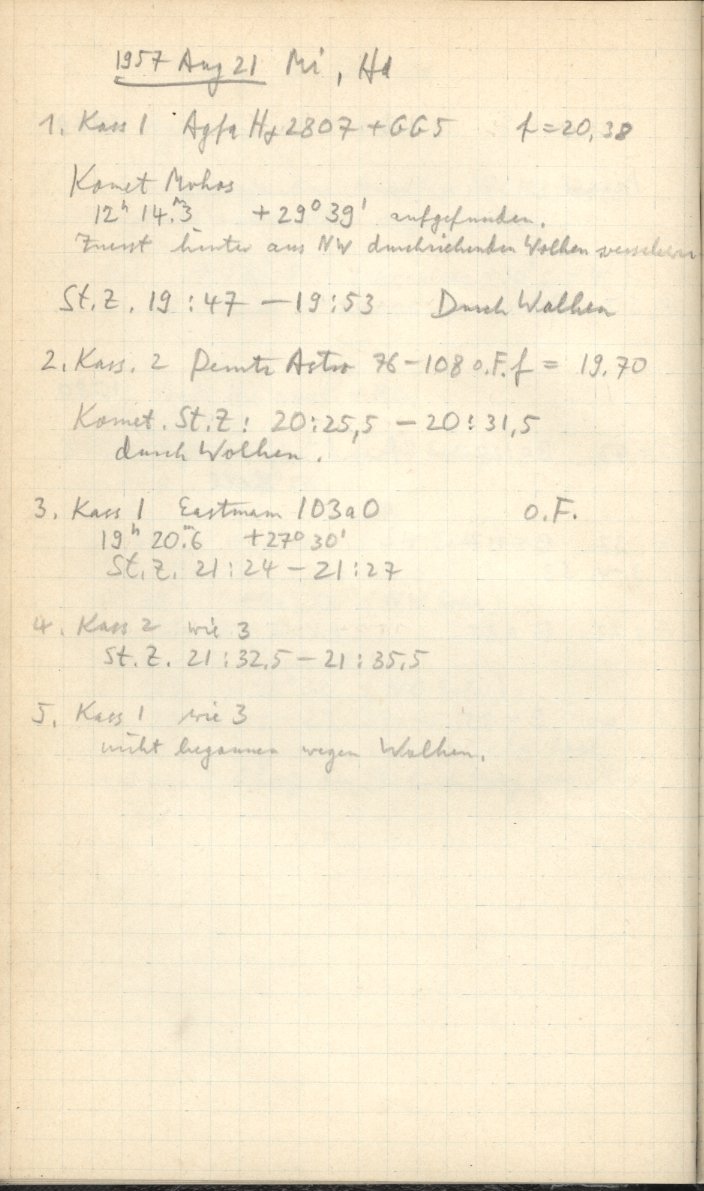 1957 Aug 21 Mi, Hd
1. Kass 1 Agfa Hγ 2807 + GG5 f = 20,38
Komet Mrkos
12h 14.m3 +29° 39' aufgefunden.
Zuerst hinter aus NW durchziehenden Wolken
St.Z. 19:47 – 19:53 Durch Wolken
2. Kass. 2 Perutz Astro 76–108 o.F. f = 19.70
Komet. St.Z: 20:25,5 – 20:31,5
durch Wolken.
3. Kass 1 Eastmam 103aO o.F.
19h 20.m6 +27° 30'
St.Z. 21:24 – 21:27
4. Kass 2 wie 3
St.Z. 21:32,5 – 21:35,5
5. Kass 1 wie 3
nicht begonnen wegen Wolken.